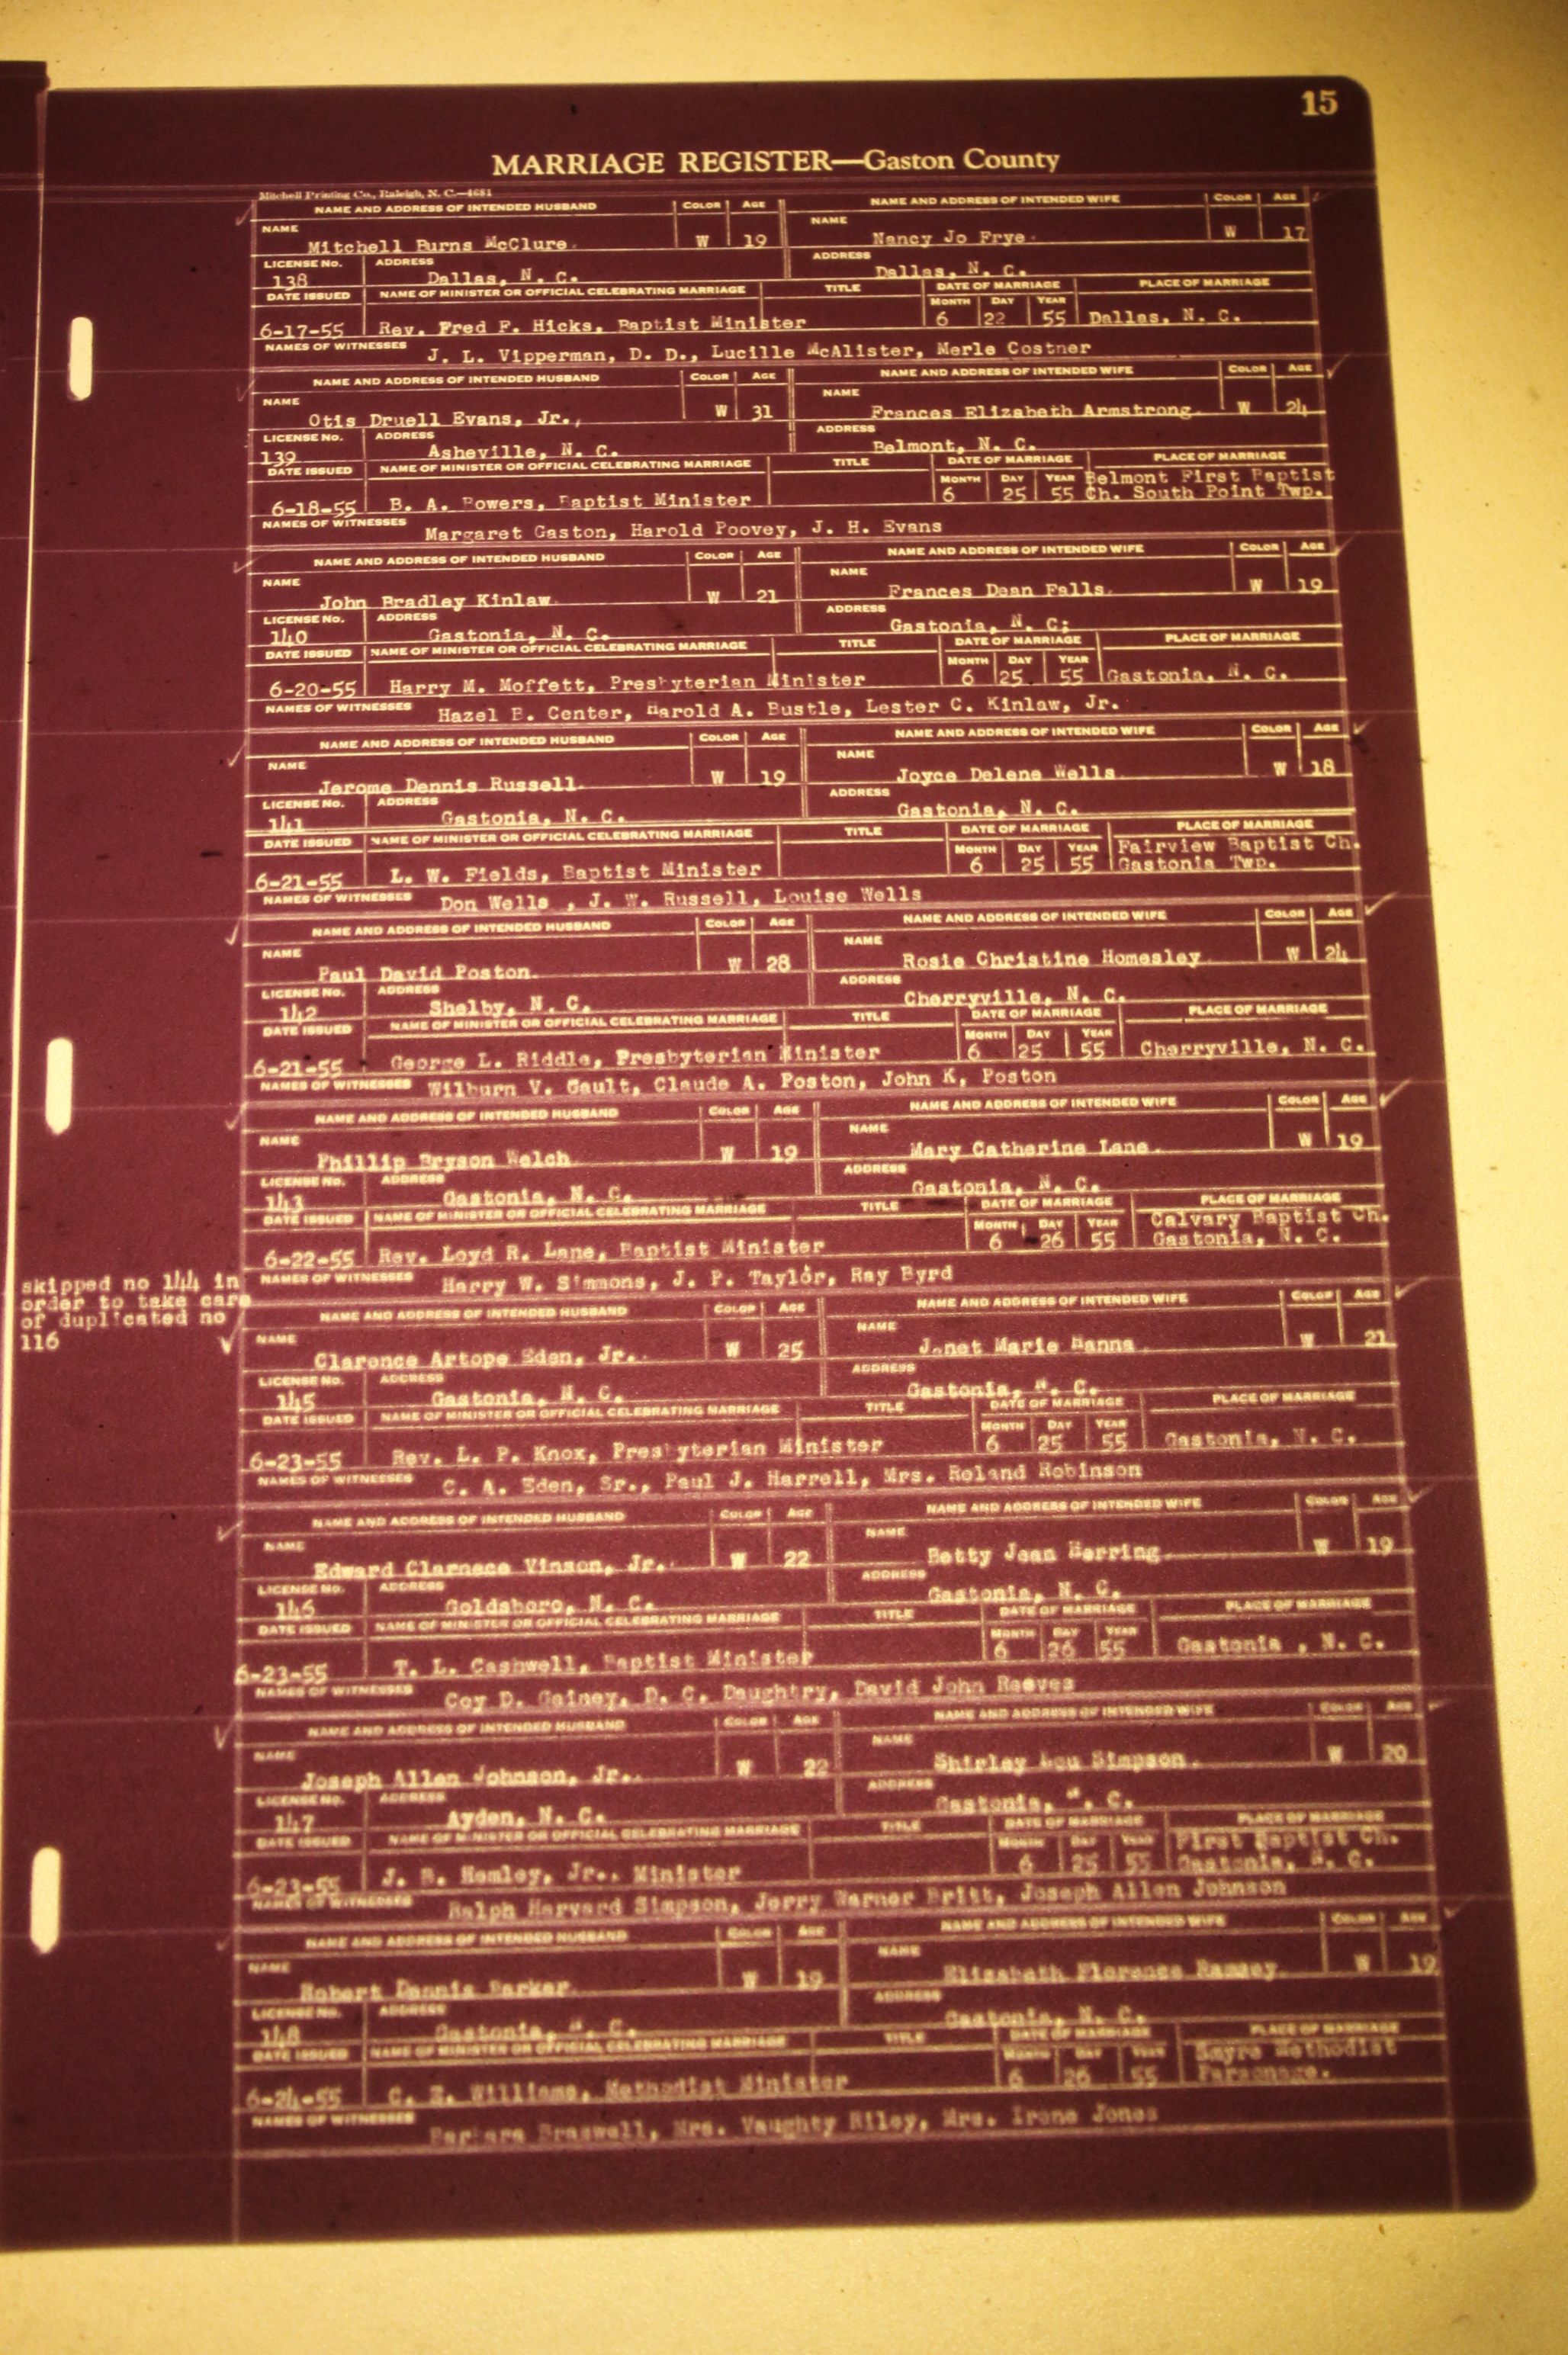 15
MARRIAGE REGISTER—Gaston County
Mitchell Printing Co., Raleigh, N. C.—4681
NAME AND ADDRESS OF INTENDED HUSBAND COLOR AGE NAME AND ADDRESS OF INTENDED WIFE COLOR AGE
NAME Mitchell Burns McClure. W 19 NAME Nancy Jo Frye. W 17
LICENSE No. 138 ADDRESS Dallas, N. C. ADDRESS Dallas, N. C.
DATE ISSUED NAME OF MINISTER OR OFFICIAL CELEBRATING MARRIAGE TITLE DATE OF MARRIAGE PLACE OF MARRIAGE
MONTH DAY YEAR
6-17-55 Rev. Fred F. Hicks, Baptist Minister 6 22 55 Dallas, N. C.
NAMES OF WITNESSES J. L. Vipperman, D. D., Lucille McAlister, Merle Costner
NAME AND ADDRESS OF INTENDED HUSBAND COLOR AGE NAME AND ADDRESS OF INTENDED WIFE COLOR AGE
NAME Otis Druell Evans, Jr., W 31 NAME Frances Elizabeth Armstrong. W 24
LICENSE No. 139 ADDRESS Asheville, N. C. ADDRESS Belmont, N. C.
DATE ISSUED NAME OF MINISTER OR OFFICIAL CELEBRATING MARRIAGE TITLE DATE OF MARRIAGE PLACE OF MARRIAGE
MONTH DAY YEAR Belmont First Baptist
6-18-55 B. A. Bowers, Baptist Minister 6 25 55 Ch. South Point Twp.
NAMES OF WITNESSES Margaret Gaston, Harold Poovey, J. H. Evans
NAME AND ADDRESS OF INTENDED HUSBAND COLOR AGE NAME AND ADDRESS OF INTENDED WIFE COLOR AGE
NAME John Bradley Kinlaw. W 21 NAME Frances Dean Falls. W 19
LICENSE No. 140 ADDRESS Gastonia, N. C. ADDRESS Gastonia, N. C;
DATE ISSUED NAME OF MINISTER OR OFFICIAL CELEBRATING MARRIAGE TITLE DATE OF MARRIAGE PLACE OF MARRIAGE
MONTH DAY YEAR
6-20-55 Harry M. Moffett, Presbyterian Minister 6 25 55 Gastonia, N. C.
NAMES OF WITNESSES Hazel B. Center, Harold A. Bustle, Lester C. Kinlaw, Jr.
NAME AND ADDRESS OF INTENDED HUSBAND COLOR AGE NAME AND ADDRESS OF INTENDED WIFE COLOR AGE
NAME Jerome Dennis Russell. W 19 NAME Joyce Delene Wells. W 18
LICENSE No. 141 ADDRESS Gastonia, N. C. ADDRESS Gastonia, N. C.
DATE ISSUED NAME OF MINISTER OR OFFICIAL CELEBRATING MARRIAGE TITLE DATE OF MARRIAGE PLACE OF MARRIAGE
MONTH DAY YEAR Fairview Baptist Ch.
6-21-55 L. W. Fields, Baptist Minister 6 25 55 Gastonia Twp.
NAMES OF WITNESSES Don Wells , J. W. Russell, Louise Wells
NAME AND ADDRESS OF INTENDED HUSBAND COLOR AGE NAME AND ADDRESS OF INTENDED WIFE COLOR AGE
NAME Paul David Poston. W 28 NAME Rosie Christine Homesley. W 24
LICENSE No. 142 ADDRESS Shelby, N. C. ADDRESS Cherryville, N. C.
DATE ISSUED NAME OF MINISTER OR OFFICIAL CELEBRATING MARRIAGE TITLE DATE OF MARRIAGE PLACE OF MARRIAGE
MONTH DAY YEAR
6-21-55 George L. Riddle, Presbyterian Minister 6 25 55 Cherryville, N. C.
NAMES OF WITNESSES Wilburn V. Gault, Claude A. Poston, John K, Poston
NAME AND ADDRESS OF INTENDED HUSBAND COLOR AGE NAME AND ADDRESS OF INTENDED WIFE COLOR AGE
NAME Phillip Bryson Welch. W 19 NAME Mary Catherine Lane. W 19
LICENSE No. 143 ADDRESS Gastonia, N. C. ADDRESS Gastonia, N. C.
DATE ISSUED NAME OF MINISTER OR OFFICIAL CELEBRATING MARRIAGE TITLE DATE OF MARRIAGE PLACE OF MARRIAGE
MONTH DAY YEAR Calvary Baptist Ch.
6-22-55 Rev. Loyd R. Lane, Baptist Minister 6 26 55 Gastonia, N. C.
NAMES OF WITNESSES Harry W. Simmons, J. P. Taylor, Ray Byrd
skipped no 144 in
order to take care
of duplicated no
116
NAME AND ADDRESS OF INTENDED HUSBAND COLOR AGE NAME AND ADDRESS OF INTENDED WIFE COLOR AGE
NAME Clarence Artope Eden, Jr. W 25 NAME Janet Marie Hanna W 21
LICENSE No. 145 ADDRESS Gastonia, N. C. ADDRESS Gastonia, N. C.
DATE ISSUED NAME OF MINISTER OR OFFICIAL CELEBRATING MARRIAGE TITLE DATE OF MARRIAGE PLACE OF MARRIAGE
MONTH DAY YEAR
6-23-55 Rev. L. P. Knox, Presbyterian Minister 6 25 55 Gastonia, N. C.
NAMES OF WITNESSES C. A. Eden, Sr., Paul J. Harrell, Mrs. Roland Robinson
NAME AND ADDRESS OF INTENDED HUSBAND COLOR AGE NAME AND ADDRESS OF INTENDED WIFE COLOR AGE
NAME Edward Clarnece Vinson, Jr. W 22 NAME Betty Jean Herring. W 19
LICENSE No. 146 ADDRESS Goldsboro, N. C. ADDRESS Gastonia, N. C.
DATE ISSUED NAME OF MINISTER OR OFFICIAL CELEBRATING MARRIAGE TITLE DATE OF MARRIAGE PLACE OF MARRIAGE
MONTH DAY YEAR
6-23-55 T. L. Cashwell, Baptist Minister 6 26 55 Gastonia , N. C.
NAMES OF WITNESSES Coy D. Gainey, D. C. Daughtry, David John Reeves
NAME AND ADDRESS OF INTENDED HUSBAND COLOR AGE NAME AND ADDRESS OF INTENDED WIFE COLOR AGE
NAME Joseph Allen Johnson, Jr. W 22 NAME Shirley Lou Simpson. W 20
LICENSE No. 147 ADDRESS Ayden, N. C. ADDRESS Gastonia, N. C.
DATE ISSUED NAME OF MINISTER OR OFFICIAL CELEBRATING MARRIAGE TITLE DATE OF MARRIAGE PLACE OF MARRIAGE
MONTH DAY YEAR First Baptist Ch.
6-23-55 J. B. Hemley, Jr., Minister 6 25 55 Gastonia, N. C.
NAMES OF WITNESSES Ralph Harvard Simpson, Jerry Warner Britt, Joseph Allen Johnson
NAME AND ADDRESS OF INTENDED HUSBAND COLOR AGE NAME AND ADDRESS OF INTENDED WIFE COLOR AGE
NAME Robert Dennis Barker. W 19 NAME Elizabeth Florence Ramsey. W 19
LICENSE No. 148 ADDRESS Gastonia, N. C. ADDRESS Gastonia, N. C.
DATE ISSUED NAME OF MINISTER OR OFFICIAL CELEBRATING MARRIAGE TITLE DATE OF MARRIAGE PLACE OF MARRIAGE
MONTH DAY YEAR Smyre Methodist
6-24-55 C. E. Williams, Methodist Minister 6 26 55 Parsonage.
NAMES OF WITNESSES Barbara Braswell, Mrs. Vaughty Riley, Mrs. Irene Jones